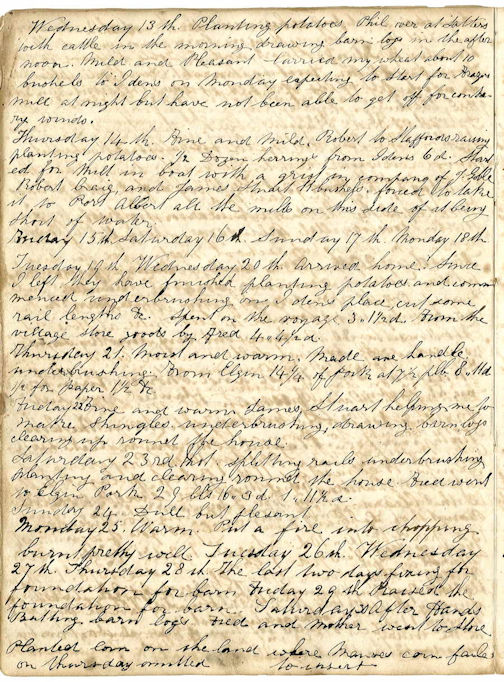 Wednesday 13th. Planting potatoes Phil over at Sutters
with cattle in the morning drawing barn logs in the after
noon. Mild and Pleasant Carried my wheat about 10
bushels to Idens on Monday expecting to start for
mill at night but have not been able to get off for contra
ry winds.
Thursday 14th. Fine and Mild. Robert to Staffords raising
planting potatoes. ½ Dozen herring from Idens 6d. Start
ed for Mill in boat with a grist in company of J.
Robert Craig, and James Stuart bushels. forced to take
it to Port Albert all the mills on this side of it being
short of water
Friday 15th Saturday 16th Sunday 17th Monday 18th
Tuesday 19th Wednesday 20th Arrived home. Since
I left they have finished planting potatoes and com
menced underbrushing on Idens place, cut some
rail lengths &c. spent on the voyage 3.1½d. From the
village store goods by Fred 4.4½d.
Thursday 21. Moist and warm. Made axe handle
underbrushing. From Elgin 14¼ of Pork at 7½ lb 8.11d
½ for Paper 1½ &c
Friday 22 Fine and warm James, Stuart helping me to
make Shingles. underbrushing, drawing barn logs
clearing up round the house
Saturday 23rd. hot. splitting rails underbrushing
Planting and clearing round the house Fred went
to Elgin Pork 2 9 lbs 6.3d 1.11½d.
Sunday 24. Dull but pleasant.
Monday 25. Warm. Put a fire into chopping
burnt pretty well Tuesday 26th. Wednesday
27th Thursday 28th The last two days fixing for
foundation for barn Friday 29th Raised the
foundation for barn. Saturday 30 After Hands
Butting barn logs Fred and Mother went to Store
Planted corn on the land where Manves corn failed
on Thursday omitted to insert